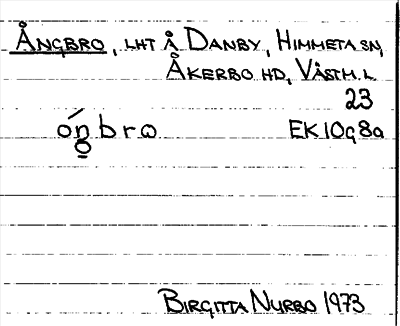 ÅNGBRO, LHT Å DANBY, HIMMETA SN,
ÅKERBO HD, VÄSTM. L.
23
óṇbro EK10g8a
BIRGITTA NURBO 1973